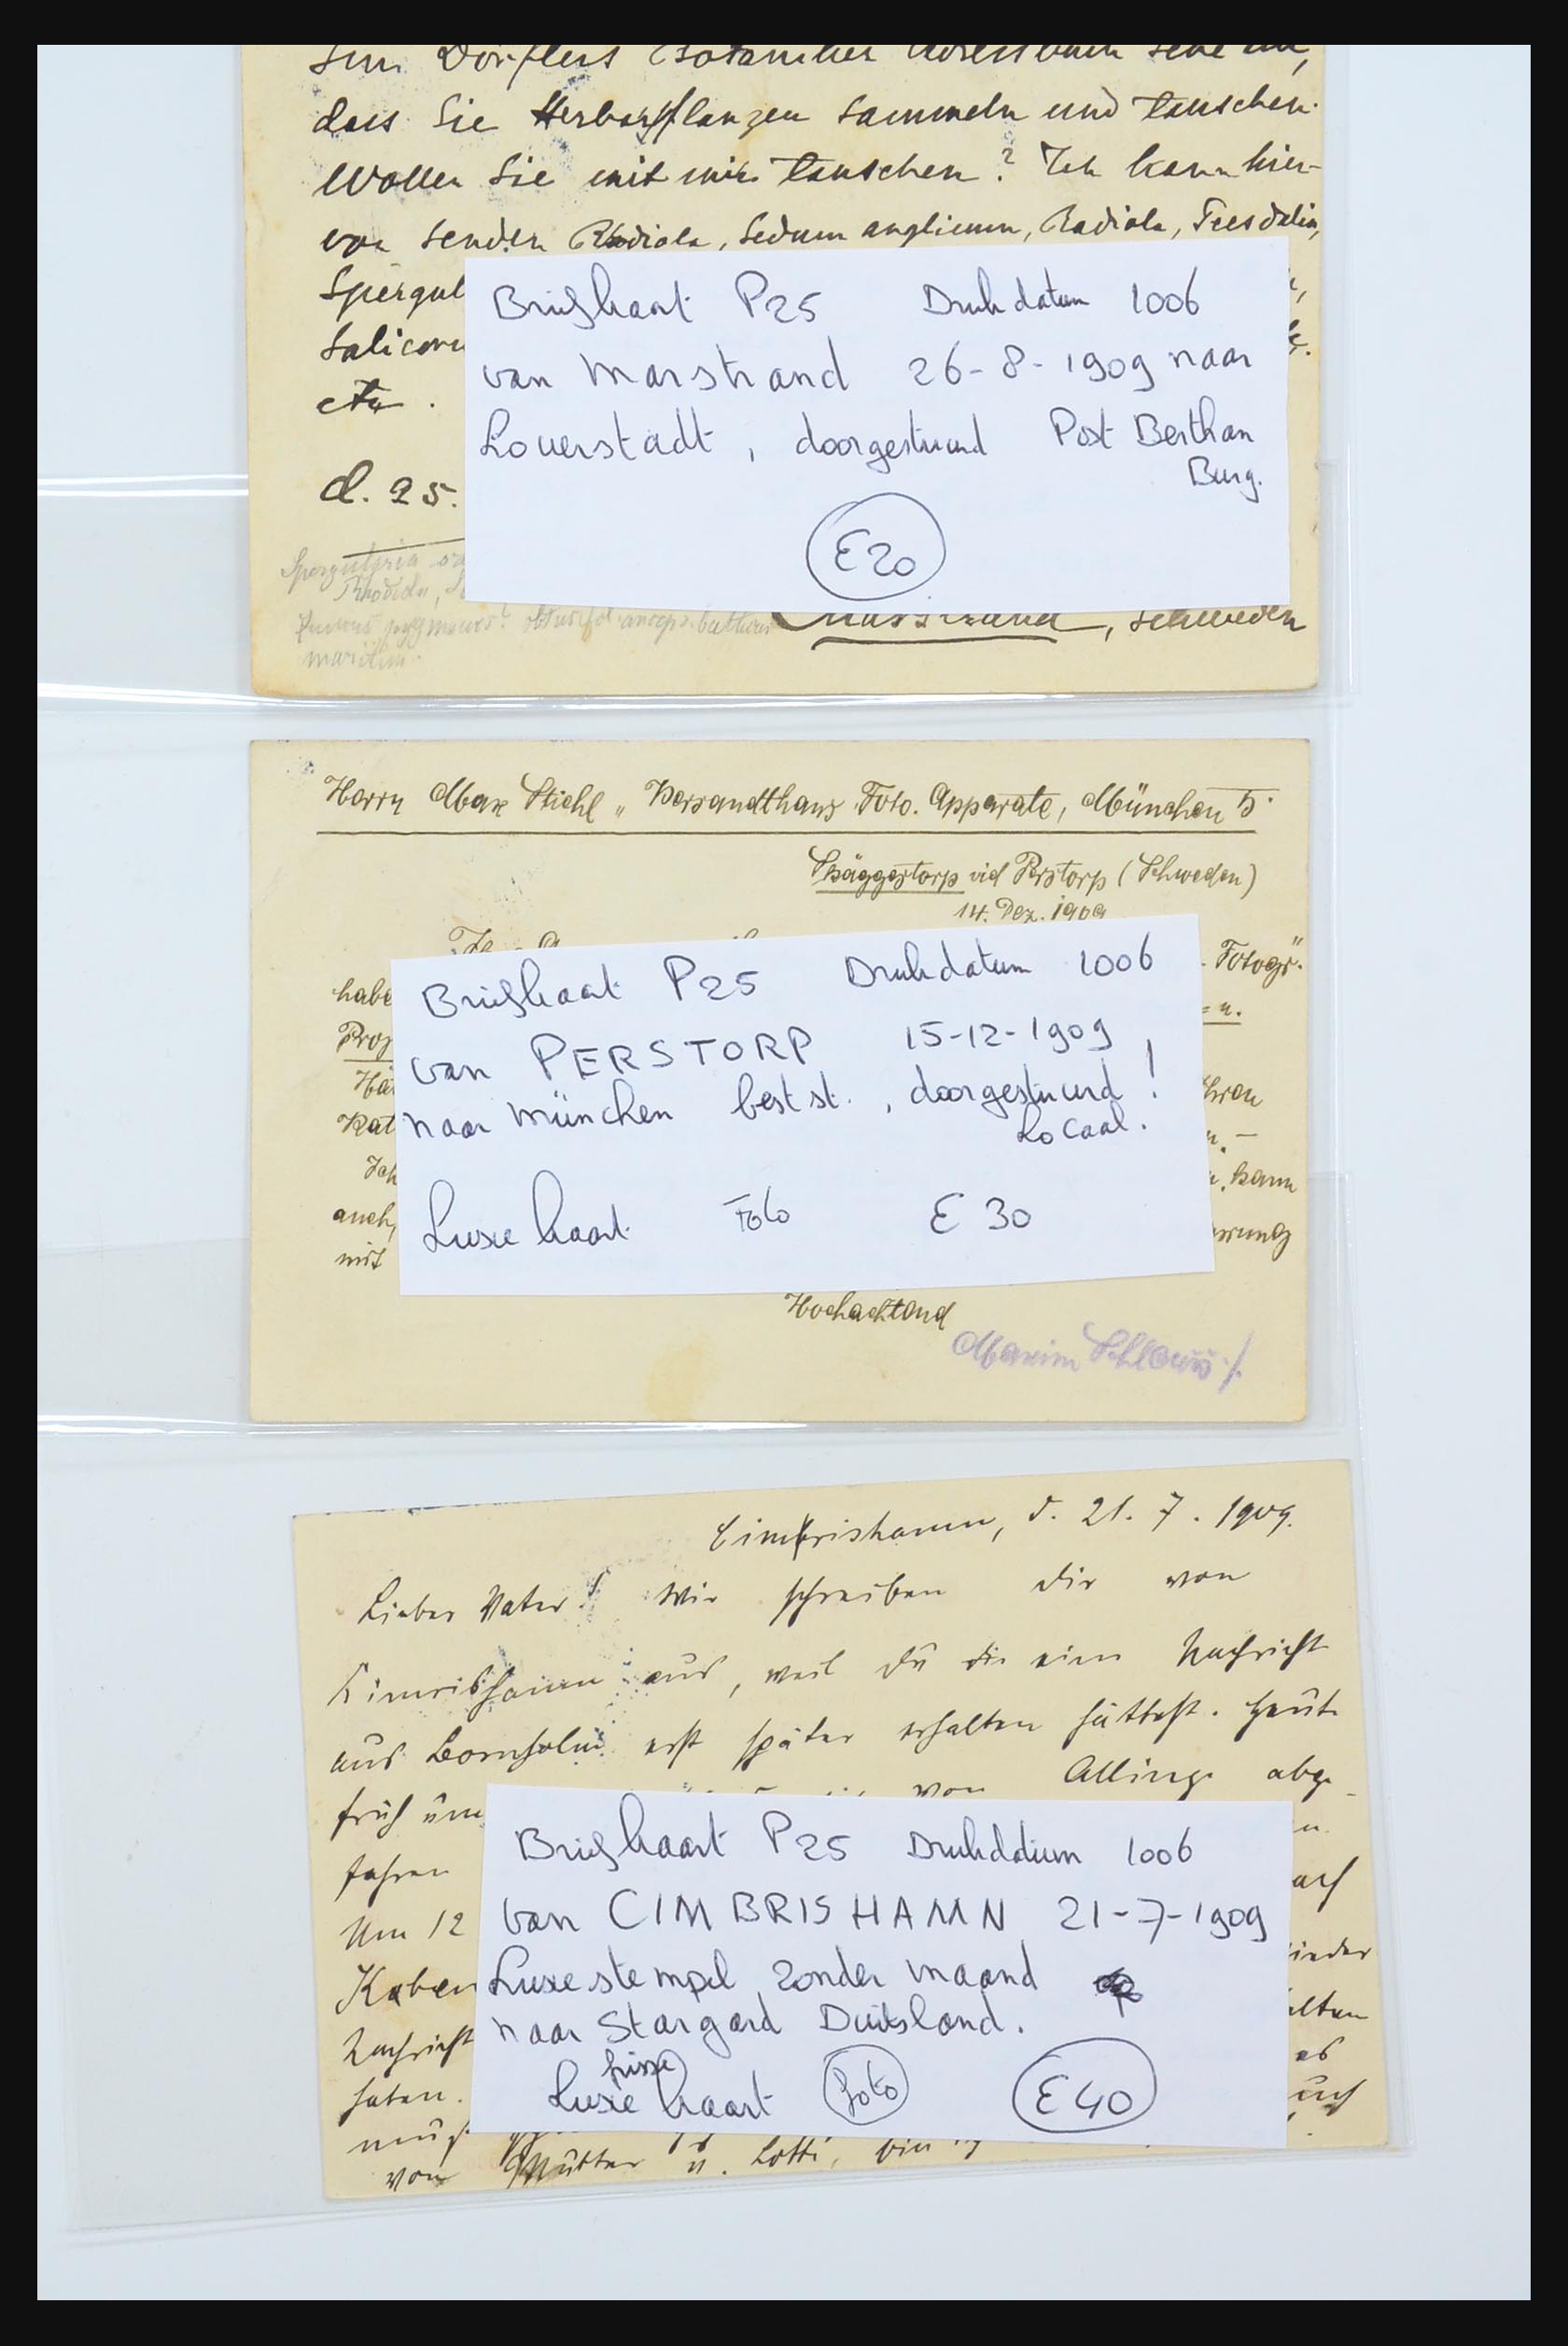 dass Sie Herbarpflanzen sammeln und tauschen.
Wollen Sie mit mir tauschen? Ich kann hier-
von senden Rhodiola, Sedum anglicum, Radiola, Teesdalia,
Spergul
Salicorn
etc.
d. 25.
Marstrand, Schweden
maritim.
Briefkaart P25 Drukdatum 1006
van Marstrand 26-8-1909 naar
Louerstadt, doorgestuurd Post Berthan
Burg.
E20
Herrn Max Stiehl "Versandthaus Foto. Apparate, München 5.
Skäggestorp vid Perstorp (Schweden)
14. Dez. 1909
Fotogr.
habe
Proz
Kat
Ich
auch, kann
mit
Briefkaart P25 Drukdatum 1006
van PERSTORP 15-12-1909
naar München best st., doorgestuurd!
Locaal.
Luxe kaart Foto E 30
Hochachtend
Cimbrishamn, d. 21. 7. 1909.
Lieber Vater! Wir schreiben dir von
Cimrishamn aus, weil du die eine Nachricht
aus Bornholm erst später erhalten hättest. Heute
früh um von Allinge abge-
fahren
Um 12
Koben
Nachricht
haben.
von Mutter u. Lotti.
Briefkaart P25 Drukdatum 1006
van CIMBRISHAMN 21-7-1909
Luxe stempel zonder maand
naar Stargard Duitsland.
frisse
Luxe kaart foto E40